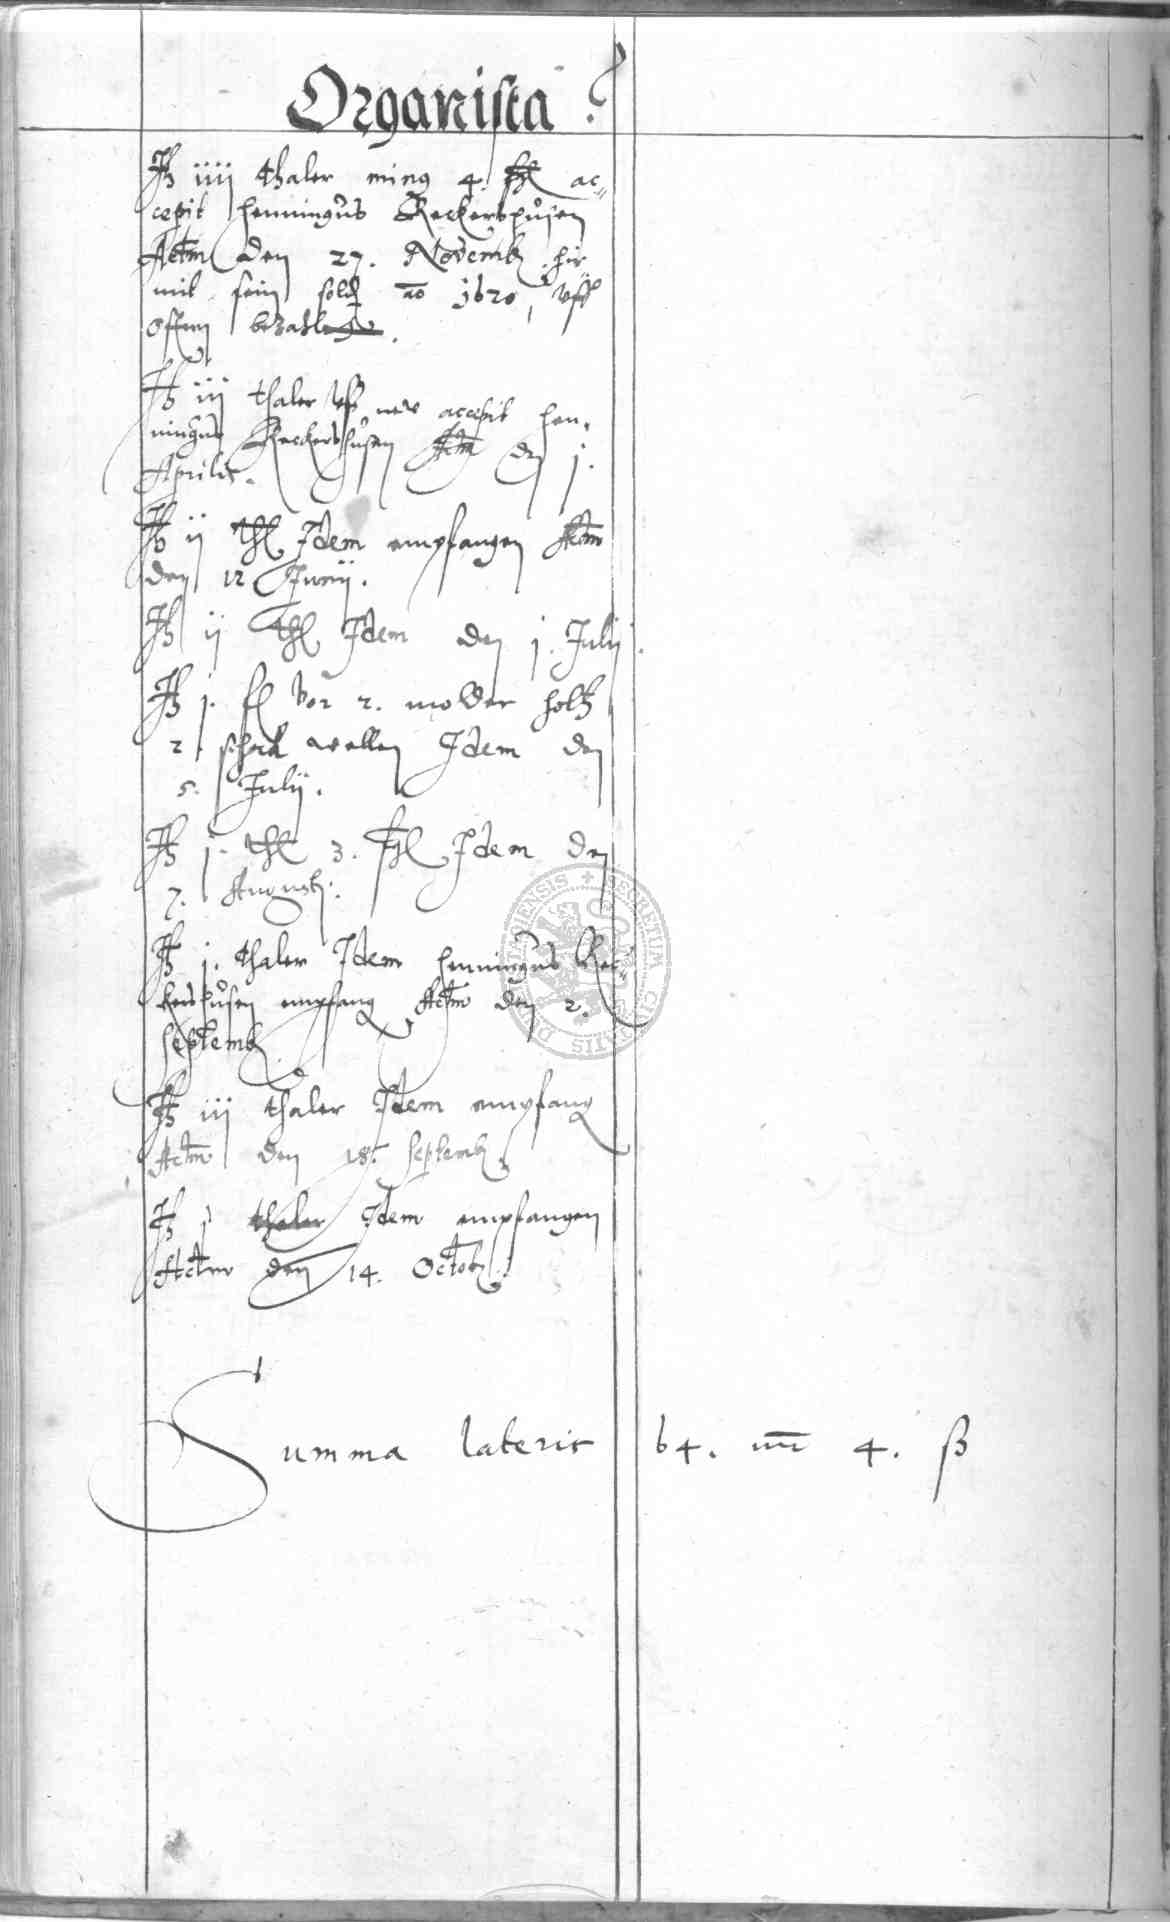 Organista
It iiij thaler ming 4. ßl ac=
cepit Henningus Reckershusen
Actm den 27. Novemb. hir
mit sein sold ao 1620, vff
Ostern bezahl
It iij thaler vff new accepit Hen=
ningus Reckershusen Actm den j.
Aprilis.
It ij thl Idem empfangen Actm
den 12 Junij.
It ij thl Idem den j. Julij.
It j. fl vor 2. molder holtz
2 schock wellen Idem den
5. Julij.
It j. thl 3. ßl Idem den
7. Augusti.
It j. thaler Idem Henningus Rec=
kershusen empfang Actm den 2.
Septemb
It iij thaler Idem empfang
Actm den 18. Septemb.
It j thaler Idem empfangen
Actm den 14. Octob.
Summa lateris 64. 4. ß
SECRETUM CIVITATIS